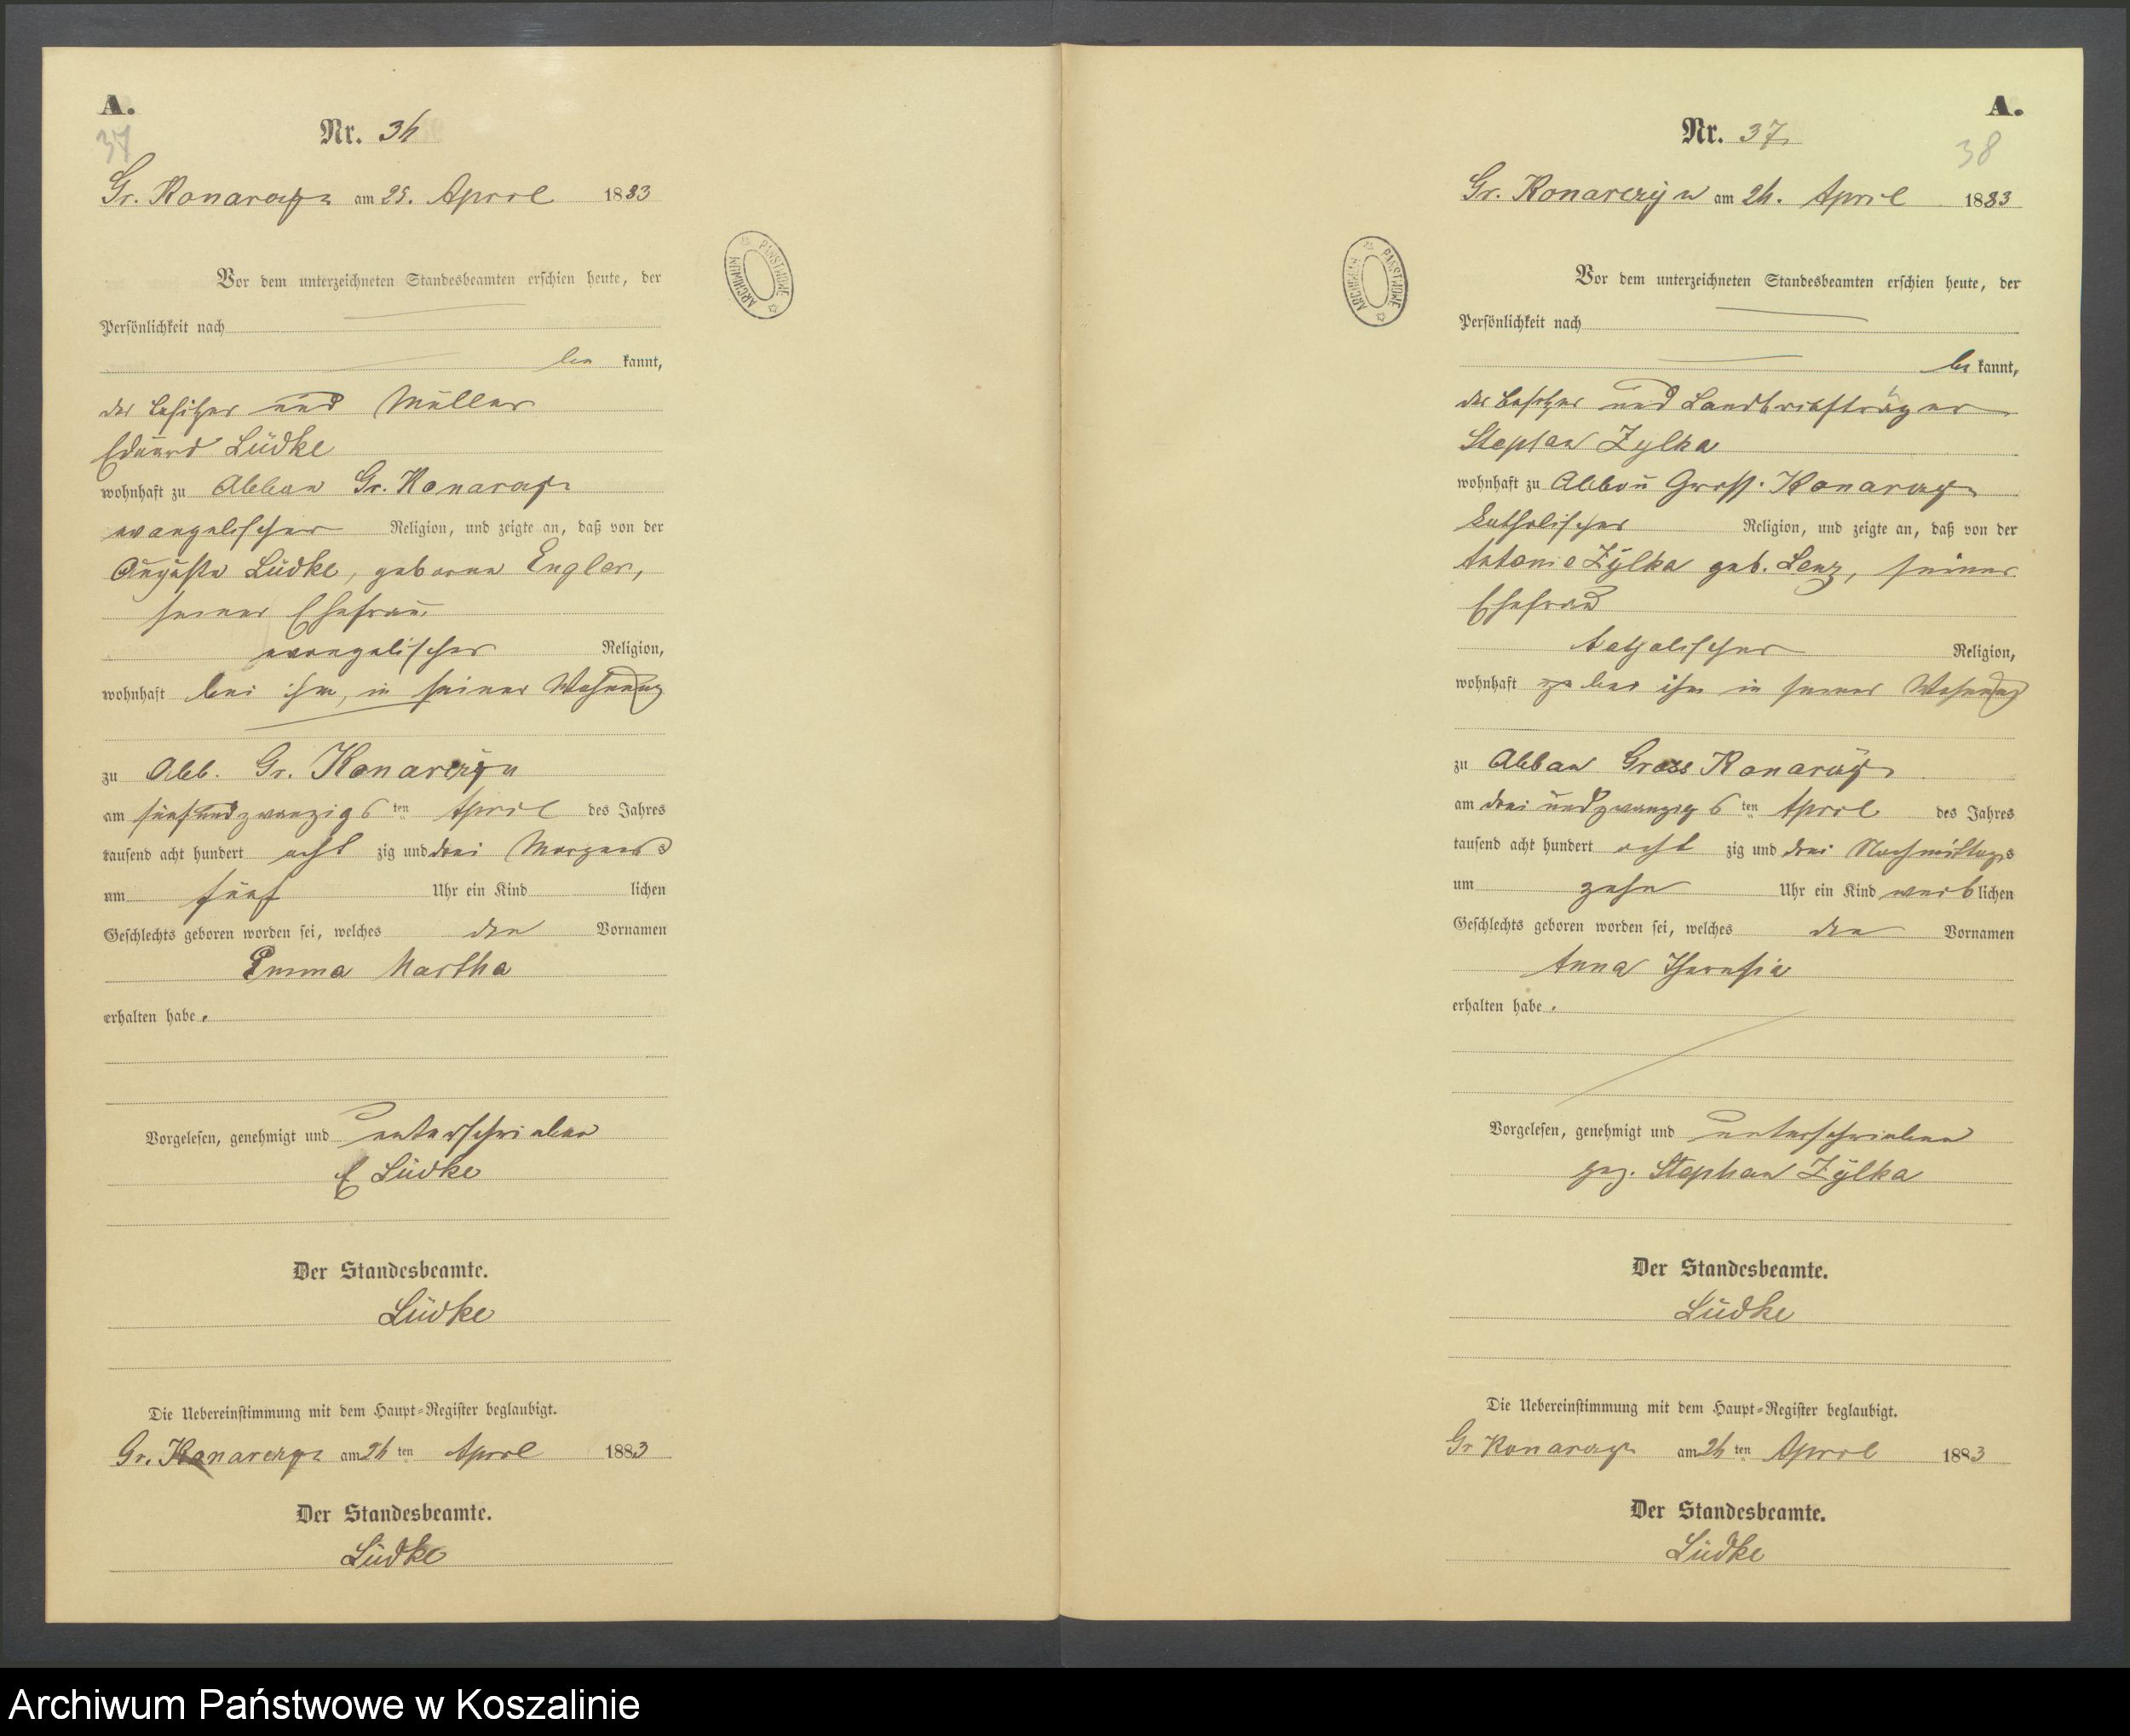 A.
37
Nr. 36
Gr. Konarczyn am 25. April 1883
Vor dem unterzeichneten Standesbeamten erschien heute, der
Persönlichkeit nach
be kannt,
der Besitzer und Müller
Eduard Lüdke
wohnhaft zu Abbau Gr. Konarczyn
evangelischer Religion, und zeigte an, daß von der
Auguste Lüdke, geborne Engler,
seiner Ehefrau
evangelischer Religion,
wohnhaft bei ihm, in seiner Wohnung
zu Abb. Gr. Konarczyn
am fünfundzwanzigs ten April des Jahres
tausend acht hundert acht zig und drei Morgens
um fünf Uhr ein Kind lichen
Geschlechts geboren worden sei, welches den Vornamen
Emma Martha
erhalten habe.
Vorgelesen, genehmigt und unterschrieben
E Lüdke
Der Standesbeamte.
Lüdke
Die Uebereinstimmung mit dem Haupt-Register beglaubigt.
Gr. Konarczyn am 26 ten April 1883
Der Standesbeamte.
Lüdke
ARCHIWUM PAŃSTWOWE
A.
38
Nr. 37
Gr. Konarczyn am 26. April 1883
Vor dem unterzeichneten Standesbeamten erschien heute, der
Persönlichkeit nach
be kannt,
der Besitzer und Landbriefträger
Stephan Zylka
wohnhaft zu Abbau Gross. Konarczyn
katholischer Religion, und zeigte an, daß von der
Antonie Zÿlka geb. Lenz, seiner
Ehefrau
katholischer Religion,
wohnhaft bei ihm in seiner Wohnung
zu Abbau Gross Konarczyn
am drei und zwanzigs ten April des Jahres
tausend acht hundert acht zig und drei Nachmittags
um zehn Uhr ein Kind weib lichen
Geschlechts geboren worden sei, welches den Vornamen
Anna Theresia
erhalten habe.
Vorgelesen, genehmigt und unterschrieben
gez. Stephan Zÿlka
Der Standesbeamte.
Lüdke
Die Uebereinstimmung mit dem Haupt-Register beglaubigt.
Gr Konarczyn am 26 ten April 1883
Der Standesbeamte.
Lüdke
ARCHIWUM PAŃSTWOWE
Archiwum Państwowe w Koszalinie